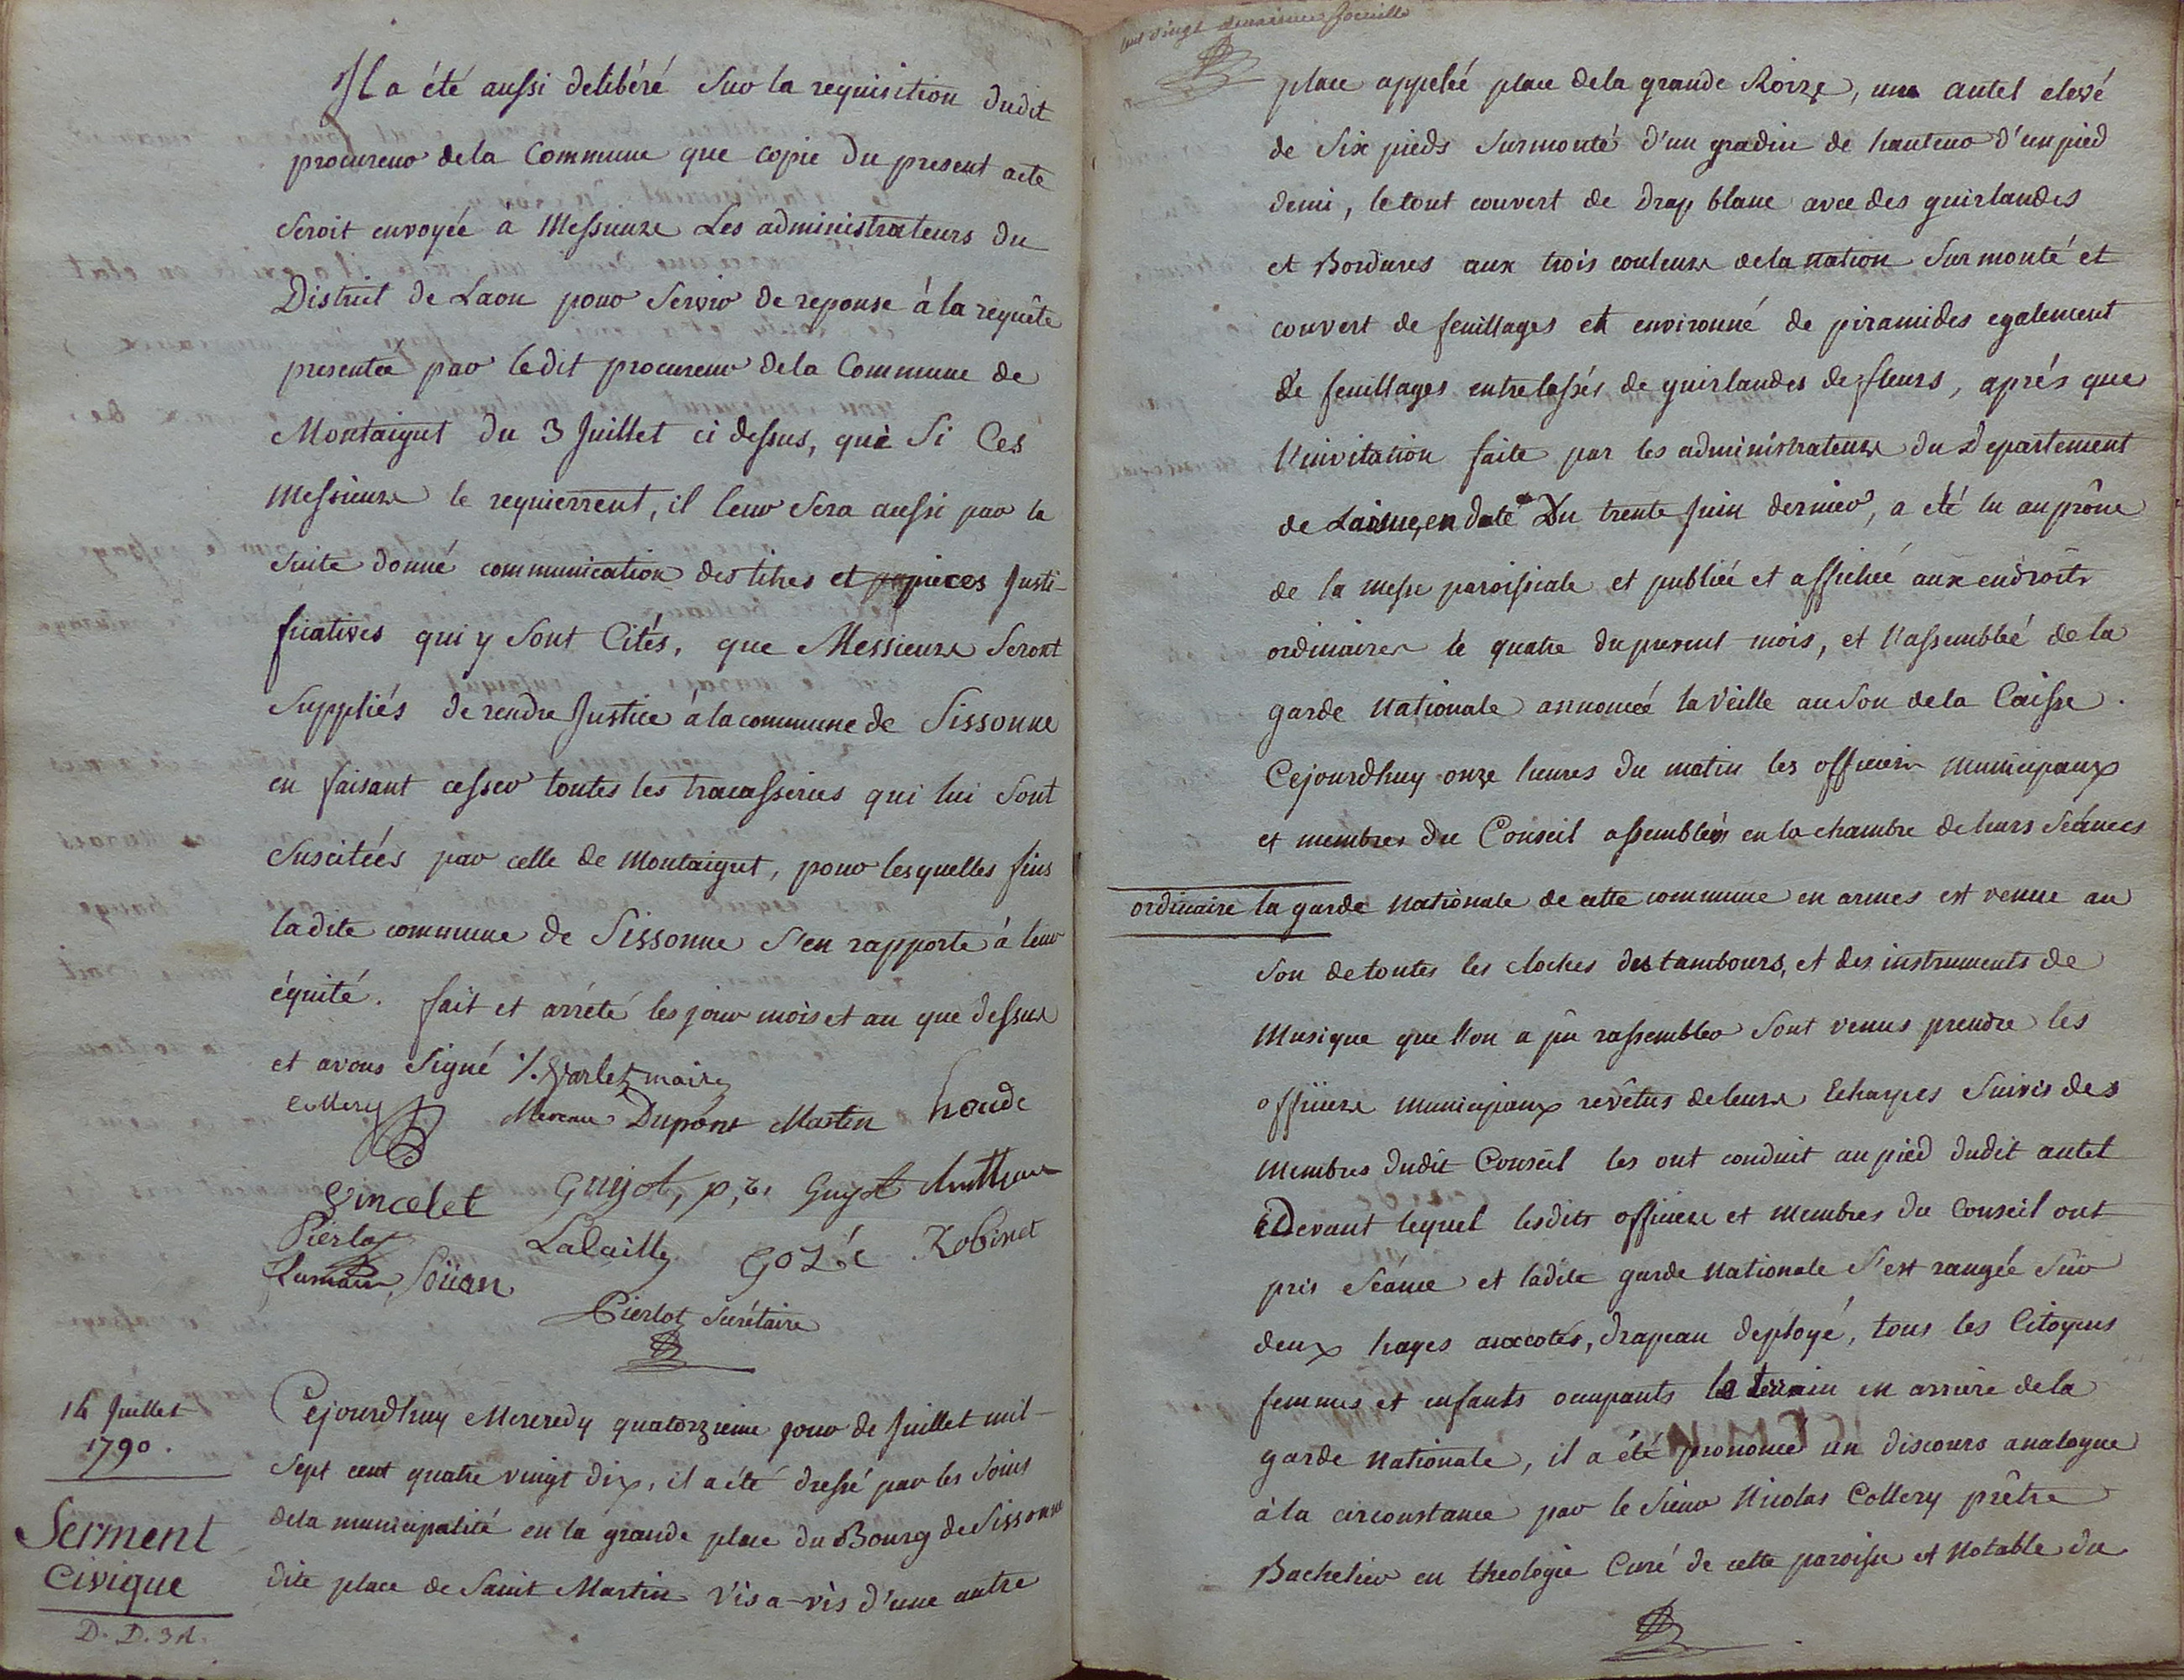 Il a été aussi delibéré Sur la requisition dudit
procureur dela Commune que copie du present acte
Seroit envoyée à Messieurs Les administrateurs du
District de Laon pour Servir de reponse à la requête
presentée par ledit procureur dela Commune de
Montaigut du 3 Juillet ci dessus, que Si Ces
Messieurs le requierrent, il leur Sera aussi par la
Suite donné communication des titres et pieces Justi-
ficatives qui y Sont Cités, que Messieurs Seront
Suppliés de rendre Justice à la commune de Sissonne
en faisant cesser toutes les tracasseries qui lui Sont
Suscitées par celle de Montaigut, pour lesquelles fins
ladite commune de Sissonne S'en rapporte à leur
équité. fait et arrété les jour mois et an que dessus
et avons Signé ./. Varlet maire
Mereau Dupont Martin houde
Vincelet Guyot, p, Guyot
Pierlot Lalailly Gozé Robinet
Soüan
Pierlot Secrétaire
14 Juillet
1790.
Serment
Civique
D. D. 31.
Cejourdhuy Mercredy quatorzieme jour de Juillet mil-
Sept cent quatre vingt dix, il a été dressé par les Soins
dela municipalité en la grande place du Bourg de Sissonne
dite place de Saint Martin Vis a-vis d'une autre
vingt deuxieme feuille
place appelée place dela grande Roize, un autel elevé
de Six pieds Surmonté d'un gradin de hauteur d'un pied
demi, le tout couvert de drap blanc avec des guirlandes
et Bordures aux trois couleurs dela nation Surmonté et
couvert de feuillages et environné de piramides egalement
de feuillages entrelassés de guirlandes de fleurs, aprés que
l'invitation faite par les administrateurs du Departement
de Laisne, en date Du trente Juin dernier, a été lu au prône
de la messe paroissiale et publiée et affichée aux endroits
ordinaires le quatre du present mois, et l'assemblée de la
garde Nationale annoncée la Veille au Son dela Caisse.
Cejourdhuy onze heures du matin les officiers municipaux
et membres du Conseil assemblés en la chambre de leurs Séances
ordinaire la garde Nationale de cette commune en armes est venue au
Son de toutes les cloches des tambours, et des instruments de
Musique que l'on a pû rassembler Sont venus prendre les
officiers municipaux revêtus de leurs Echarpes Suivis des
Membres dudit Conseil les ont conduit au pied dudit autel
Devant lequel lesdits officiers et membres du Conseil ont
pris Séance et ladite garde Nationale S'est rangée Sur
deux hayes aux cotés, drapeau deployé, tous les Citoyens
femmes et enfants occupants le terrain en arriere dela
garde Nationale, il a été prononcé un discours analogue
à la circonstance par le Sieur Nicolas Collery prêtre
Bachelier en theologie Curé de cette paroisse et Notable du